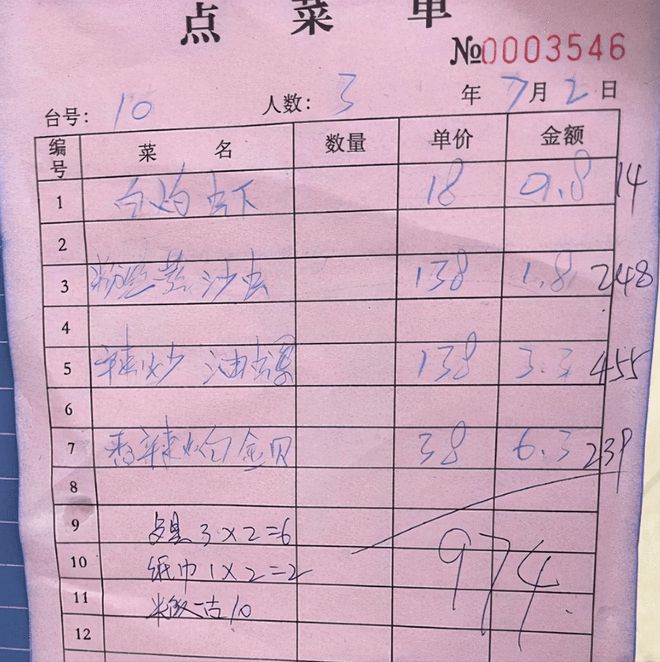 点 菜 单
№0003546
台号: 10 人数: 3 年 7月2日
编号 菜 名 数量 单价 金额
1 白灼虾 18 0.8 14
2
3 粉丝蒸沙虫 138 1.8 248
4
5 辣炒 油螺 138 3.3 455
6
7 香辣炒白金贝 38 6.3 239
8
9 3×2=6
10 纸巾1×2=2
11 米饭一古10
974
12